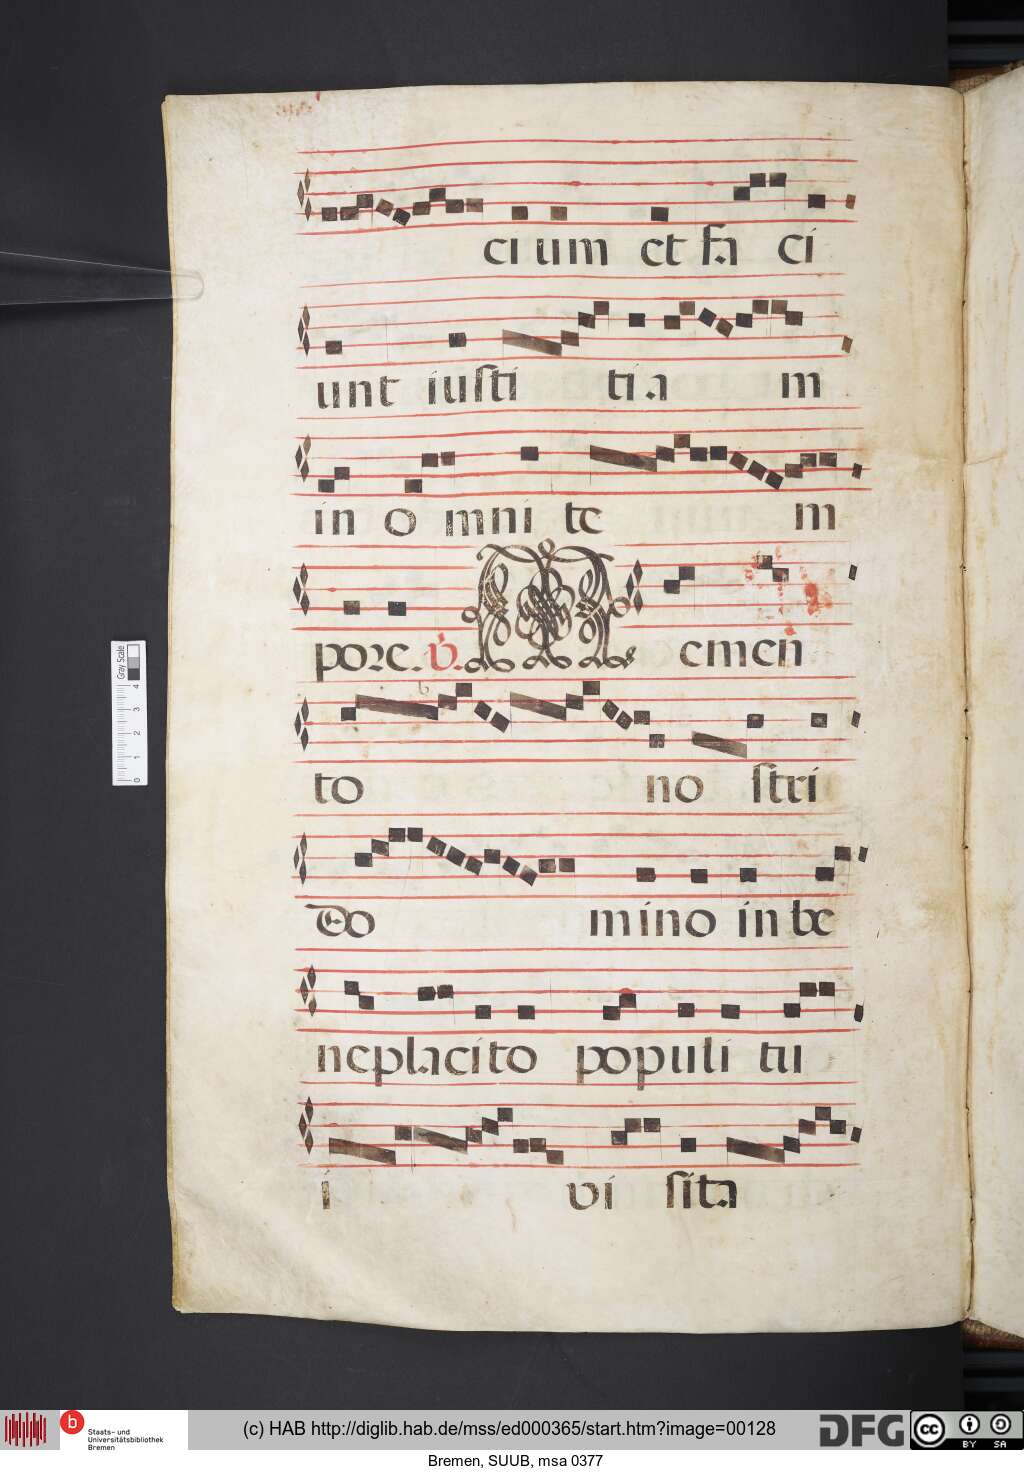 cium et faci
unt iusti tiam
in omni tem
pore. V. Memen
to nostri
Domino in be
neplacito populi tu
i visita
Gray Scale
4
3
2
1
0
b
Staats- und
Universitätsbibliothek
Bremen
(c) HAB http://diglib.hab.de/mss/ed000365/start.htm?image=00128
DFG
cc BY SA
Bremen, SUUB, msa 0377